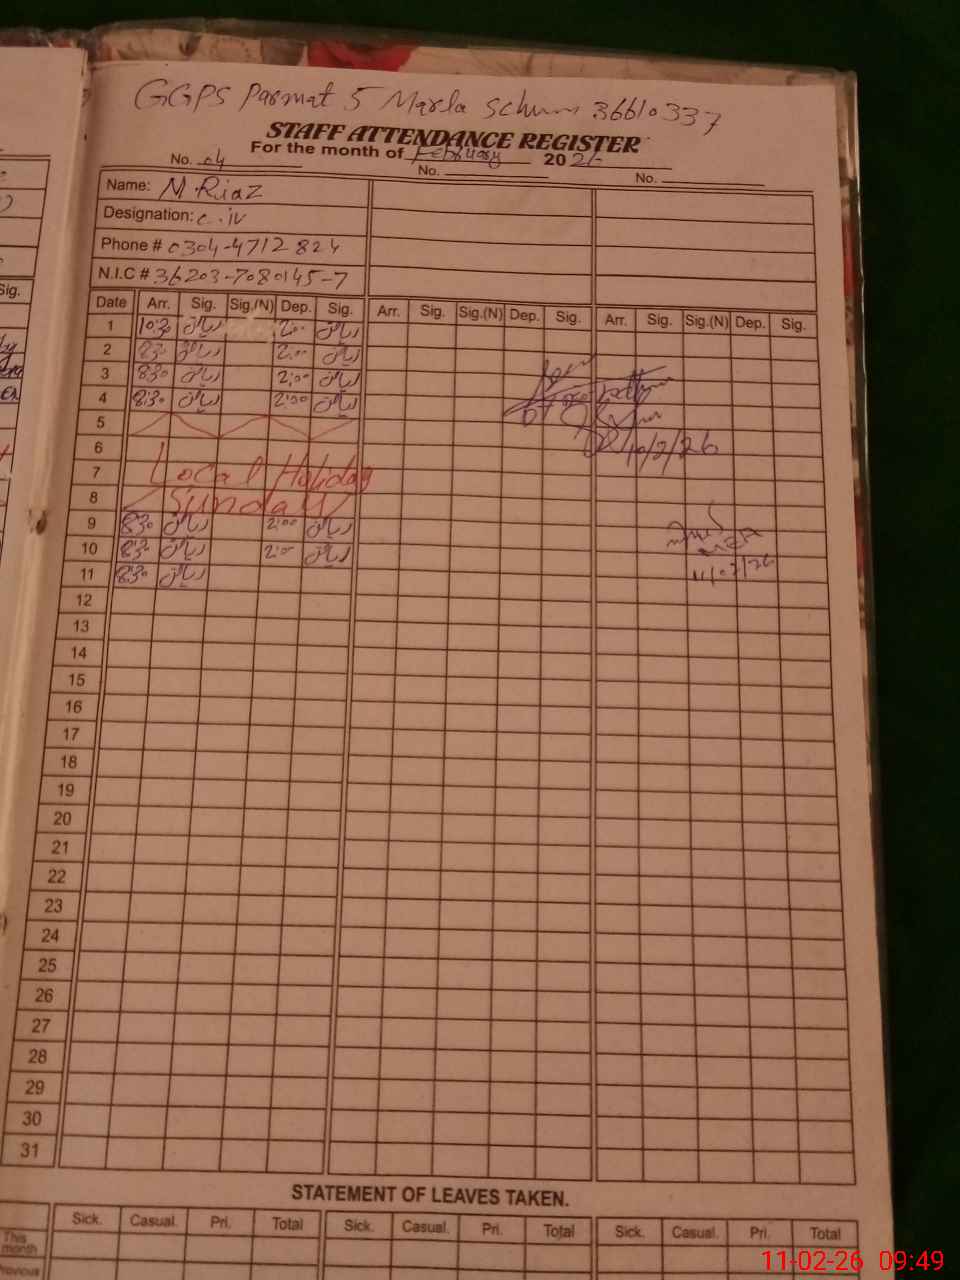 GGPS Parmat 5 Marla Schum 36610337
STAFF ATTENDANCE REGISTER
For the month of February 202
No. 04 No. No.
Name: M Riaz
Designation: C.iv
Phone # 0304-4712824
N.I.C # 36203-7080145-7
Date Arr. Sig. Sig.(N) Dep. Sig. Arr. Sig. Sig.(N) Dep. Sig. Arr. Sig. Sig.(N) Dep. Sig.
1 10:30 ریاض 2:00 ریاض
2 8:30 ریاض 2:00 ریاض
3 8:30 ریاض 2:00 ریاض
4 8:30 ریاض 2:00 ریاض
5
6 10/2/26
7 Local Holiday
8 Sunday
9 8:30 ریاض 2:00 ریاض
10 8:30 ریاض 2:00 ریاض
11 8:30 ریاض 11/02/26
12
13
14
15
16
17
18
19
20
21
22
23
24
25
26
27
28
29
30
31
STATEMENT OF LEAVES TAKEN.
Sick. Casual. Pri. Total Sick. Casual. Pri. Total Sick. Casual. Pri. Total
This
month
Previous
11-02-26 09:49